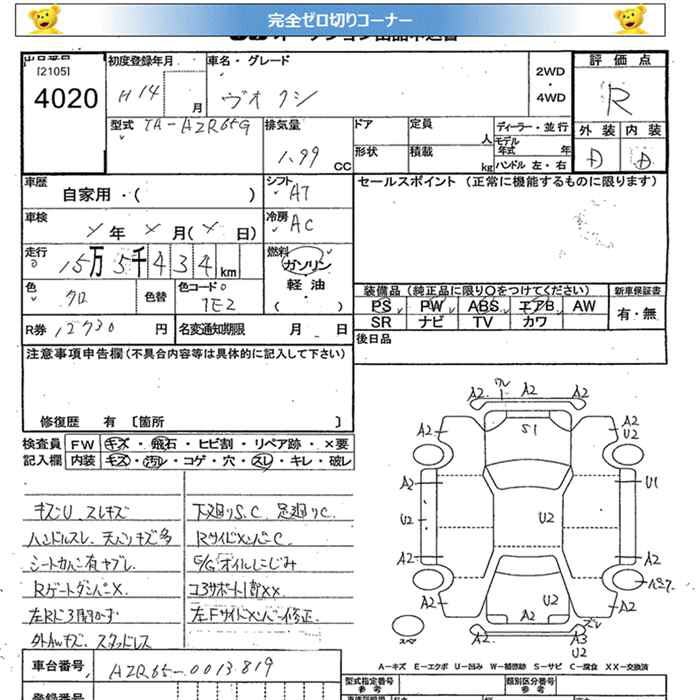 完全ゼロ切りコーナー
オークション出品申込書
出品番号
[2105]
4020
初度登録年月
H14 月
車名・グレード
ヴォクシ
2WD
・
4WD
評価点
R
型式 TA-AZR65G
排気量
1.99 CC
ドア
定員 人
ディーラー・並行
モデル年式 年
形状
積載 kg
ハンドル 左・右
外装 内装
D D
車歴
自家用・( )
シフト
AT
セールスポイント (正常に機能するものに限ります)
車検
年 月( 日)
冷房
AC
走行
15万5千434km
燃料
ガソリン
軽油
( )
色
クロ
色替
色コード
1E2
装備品 (純正品に限り○をつけてください)
新車保証書
PS PW ABS エアB AW
有・無
SR ナビ TV カワ
R券 12730 円
名変通知期限 月 日
後日品
注意事項申告欄(不具合内容等は具体的に記入して下さい)
修復歴 有 [箇所 ]
検査員 FW キズ・飛石・ヒビ割・リペア跡・×要
記入欄 内装 キズ・汚レ・コゲ・穴・スレ・キレ・破レ
キズU、スレキズ
ハンドルスレ、天ハリキズ多
シートカバー有ヤブレ
RゲートダンパーX
左Rドア開かず
外AWキズ、スタッドレス
下廻りS、C、足廻りC
RサイドメンバーC
E/Gオイルにじみ
コアサポート修XX
左Fサイドメンバー修正
A2 ワレ A2 A2
A2 S1 A2
U2
A2 U1
U2 U2
A2 A2
U2
A2 A2 A2
スペア A2 A3 ズレ
U2
A-キズ E-エクボ U-凹み W-補修跡 S-サビ C-腐食 XX-交換済
車台番号 AZR65-0013819
型式指定番号
参考
類別区分番号
参考
登録番号